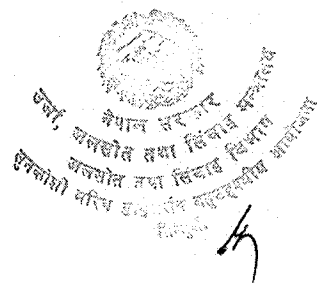 नेपाल सरकार
उर्जा, जलस्रोत तथा सिंचाइ मन्त्रालय
जलस्रोत तथा सिंचाइ विभाग
सुनकोशी मरिण डाइभर्सन बहुउद्देश्यीय आयोजना